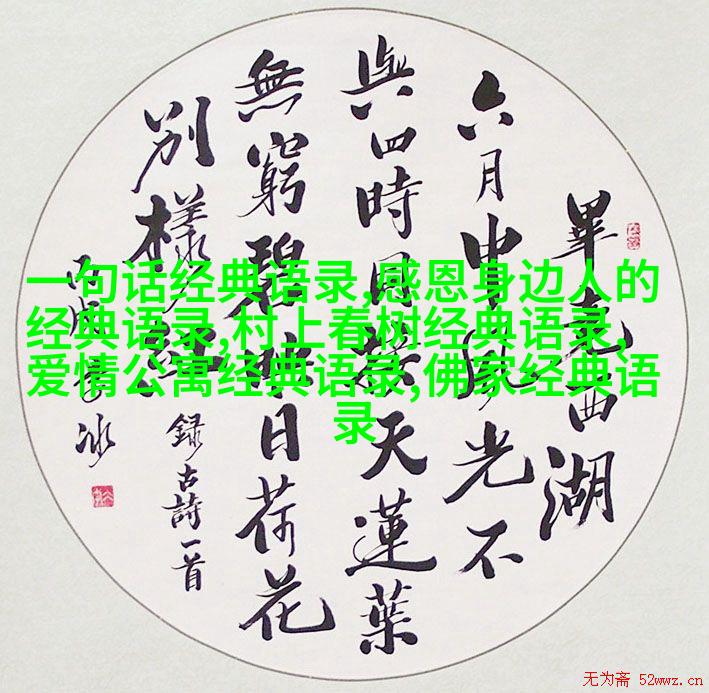 畢竟西湖
六月中風光不
與四時同接天蓮葉
無窮碧映日荷花
別樣紅
錄古詩一首
一句话经典语录,感恩身边人的
经典语录,村上春树经典语录,
爱情公寓经典语录,佛家经典语
录
无为斋 52wwz.cn